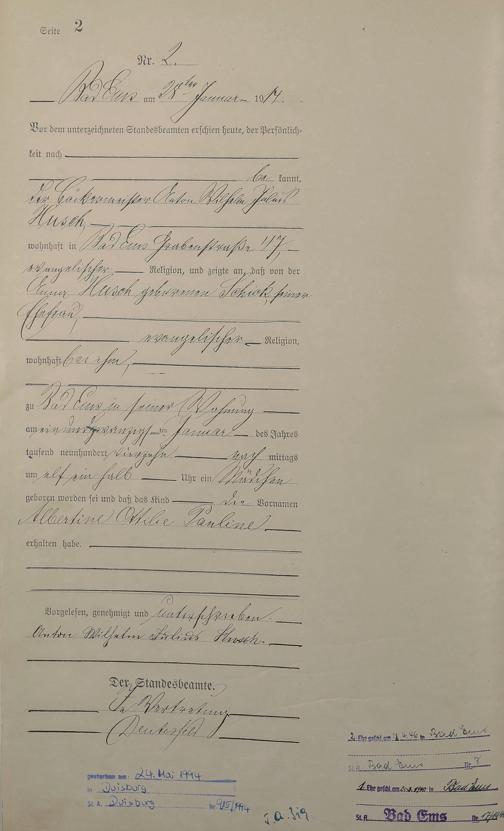 Seite 2
Nr. 2.
Bad Ems am 28ten Januar 1914.
Vor dem unterzeichneten Standesbeamten erschien heute, der Persönlich-
keit nach
be kannt,
der Bäckermeister Anton Wilhelm Julius
Husch,
wohnhaft in Bad Ems Grabenstraße 47,
evangelischer Religion, und zeigte an, daß von der
Anna Husch geborenen Schick, seiner
Ehefrau,
evangelischer Religion,
wohnhaft bei ihm,
zu Bad Ems in seiner Wohnung
am ein und zwanzigsten Januar des Jahres
tausend neunhundert vierzehn nach mittags
um elf ein halb Uhr ein Mädchen
geboren worden sei und daß das Kind die Vornamen
Albertine Ottilie Pauline
erhalten habe.
Vorgelesen, genehmigt und unterschrieben.
Anton Wilhelm Julius Husch.
Der Standesbeamte.
In Vertretung
gestorben am 24. Mai 1994
in Duisburg
St.A. Duisburg Nr.
2. Ehe geschl. am in Bad Ems
St.A. Bad Ems Nr.
1. Ehe geschl. am in Bad Ems
St.A. Bad Ems Nr.